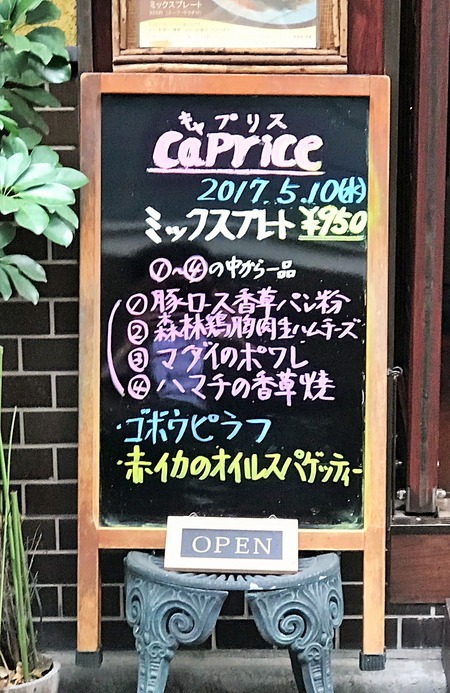 ミックスプレート
キャプリス
Caprice
2017.5.10(水)
ミックスプレート ¥950
①〜④の中から一品
①豚ロース香草パン粉
②森林鶏胸肉生ハムチーズ
③マダイのポワレ
④ハマチの香草焼
・ゴボウピラフ
・赤イカのオイルスパゲッティー
OPEN